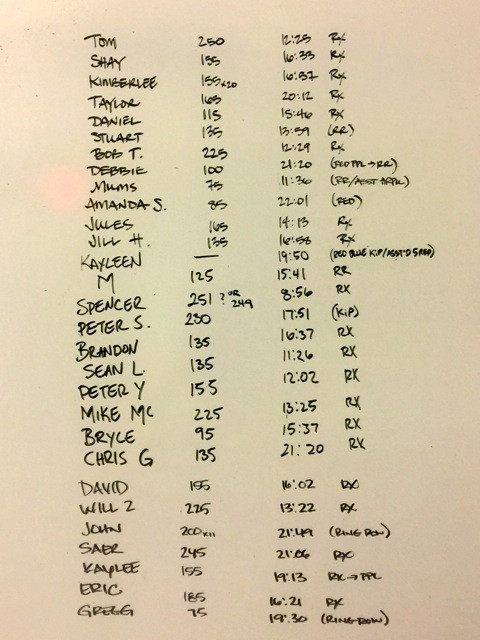 TOM 250 12:25 RX
SHAY 155 16:33 RX
KIMBERLEE 155 x20 16:37 RX
TAYLOR 165 20:12 RX
DANIEL 115 15:46 RX
STUART 135 13:59 (RR)
BOB T. 225 12:29 RX
DEBBIE 100 21:20 (RED PPL → RR)
MUMS 75 11:36 (RR/ASST
AMANDA S. 85 22:01 (RED)
JULES 165 14:13 RX
JILL H. 135 16:58 RX
KAYLEEN — 19:50 (RED BLUE KIP/ASST'D 5 RED)
M 125 15:41 RR
SPENCER 251 ? OR 249 8:56 RX
PETER S. 230 17:51 (KIP)
BRANDON 135 16:37 RX
SEAN L. 135 11:26 RX
PETER Y 155 12:02 RX
MIKE MC 225 13:25 RX
BRYCE 95 15:37 RX
CHRIS G 135 21:20 RX
DAVID 155 16:02 RX
WILL Z 225 13:22 RX
JOHN 200 x11 21:49 (RING ROW)
SAER 245 21:06 RX
KAYLEE 155 19:13 RX → PPL
ERIC 185 16:21 RX
GREGG 75 19:30 (RING ROW)